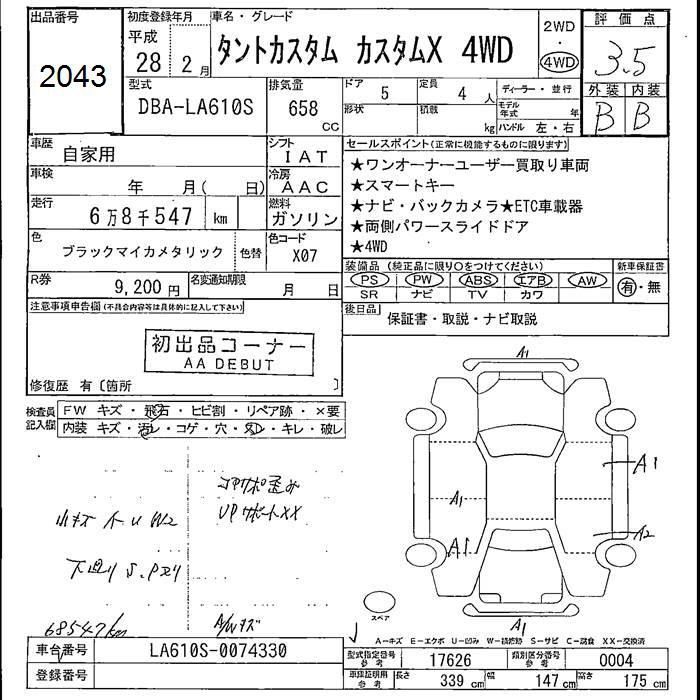 出品番号
2043
初度登録年月
平成
28 2月
車名・グレード
タントカスタム カスタムX 4WD
2WD
4WD
評価点
3.5
外装 内装
B B
型式
DBA-LA610S
排気量
658
CC
ドア 5
形状
定員 4 人
積載 kg
ディーラー・並行
モデル年式 年
ハンドル 左・右
車歴
自家用
シフト
IAT
車検
年 月( 日)
冷房
AAC
走行
6万8千547 km
燃料
ガソリン
色
ブラックマイカメタリック
色替
色コード
X07
R券
9,200円
名変通知期限
月 日
セールスポイント(正常に機能するものに限ります)
★ワンオーナーユーザー買取り車両
★スマートキー
★ナビ・バックカメラ★ETC車載器
★両側パワースライドドア
★4WD
装備品(純正品に限り○をつけてください)
PS PW ABS エアB AW
SR ナビ TV カワ
新車保証書
有・無
後日品
保証書・取説・ナビ取説
注意事項申告欄(不具合内容等は具体的に記入して下さい)
初出品コーナー
AA DEBUT
修復歴 有〔箇所 〕
検査員記入欄
FW キズ・飛石・ヒビ割・リペア跡・×要
内装 キズ・汚レ・コゲ・穴・ヌレ・キレ・破レ
コアサポ歪み
UPサポートXX
小キズ 小U W2
下廻りS.Pスリ
68547km
A/Wキズ
A1
A1
A1
A2
A1
A1
スペア
A-キズ E-エクボ U-凹み W-補修跡 S-サビ C-腐食 XX-交換済
車台番号
LA610S-0074330
登録番号
型式指定番号
参考
17626
類別区分番号
参考
0004
車検証明用
参考
長さ 339 cm
幅 147 cm
高さ 175 cm